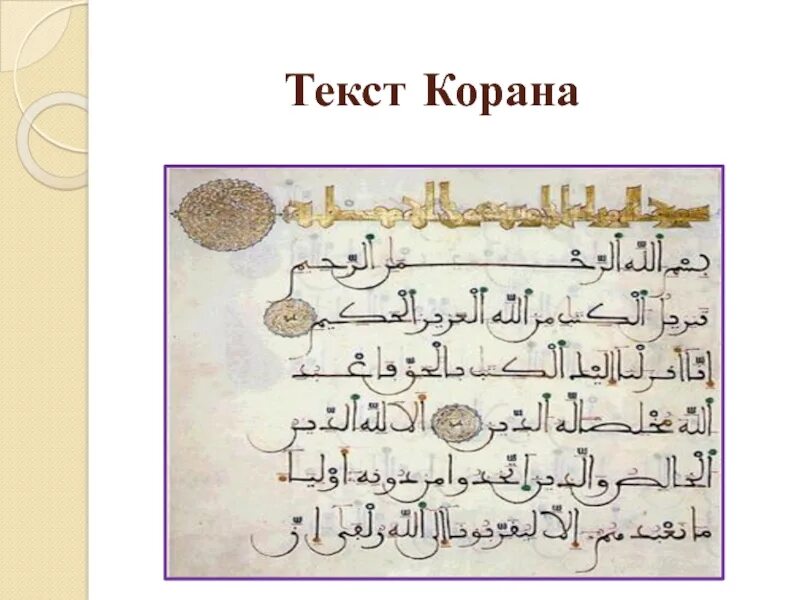 Текст Корана
بِسْمِ اللَّهِ الرَّحْمَٰنِ الرَّحِيمِ
تنزيل الكتب من الله العزيز الحكيم
انا انزلنا اليك الكتب بالحق فاعبد
الله مخلصا له الدين الا لله الدين
الخالص والذين اتخذوا من دونه اوليا
ما نعبدهم الا ليقربونا الى الله زلفى ان